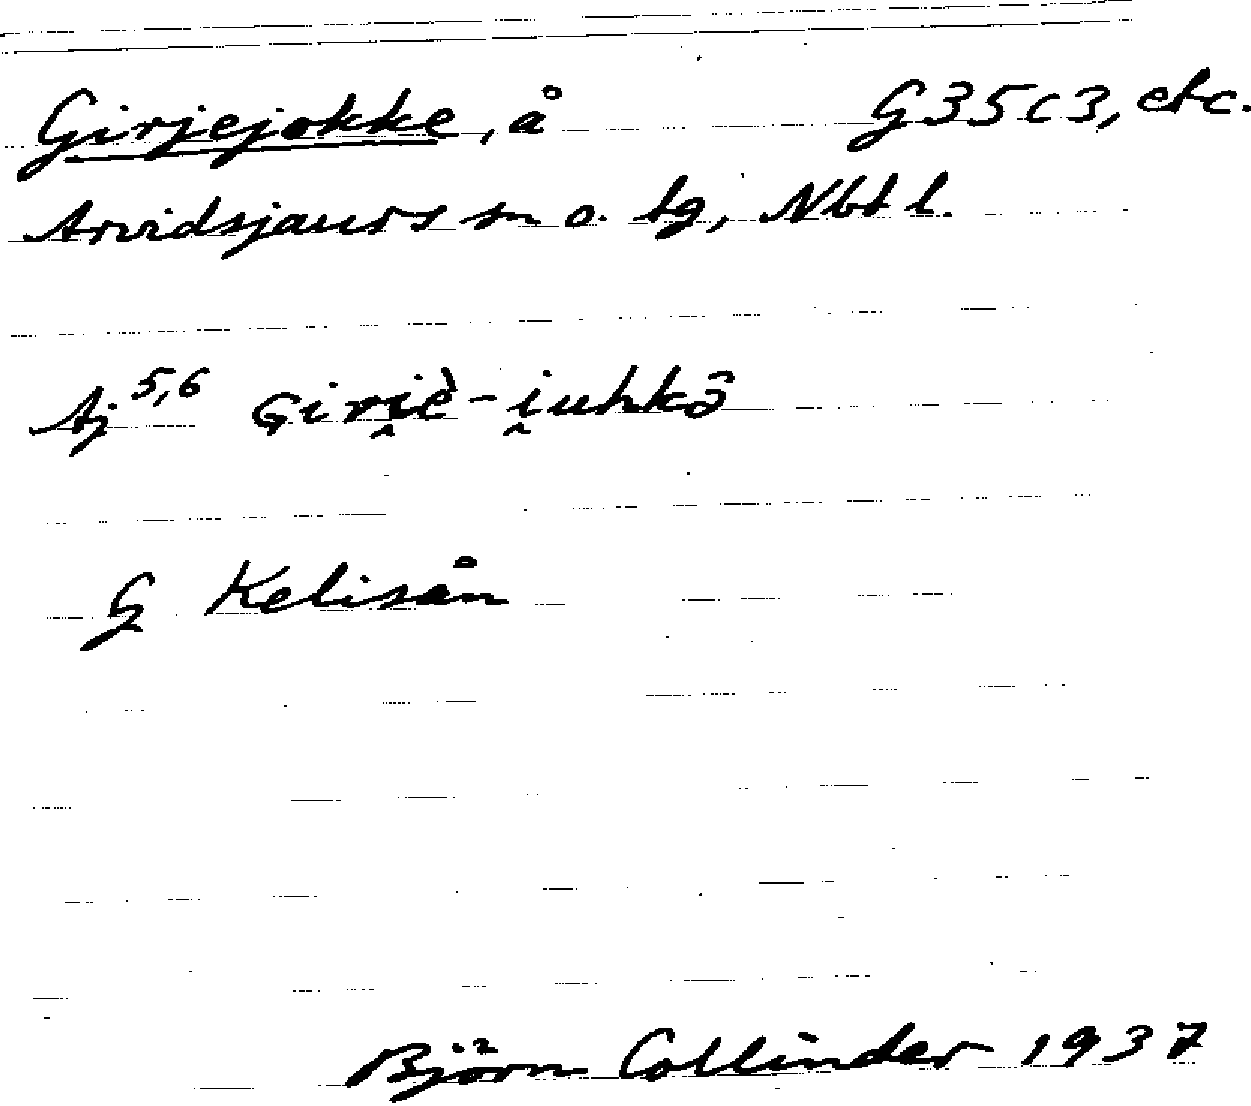 Girjejokke, å G35c3, etc.
Arvidsjaurs sn o. tg, Nbt l.
Aj 5,6 Giri̯è-i̯uhkɜ
G Kelisån
Björn Collinder 1937